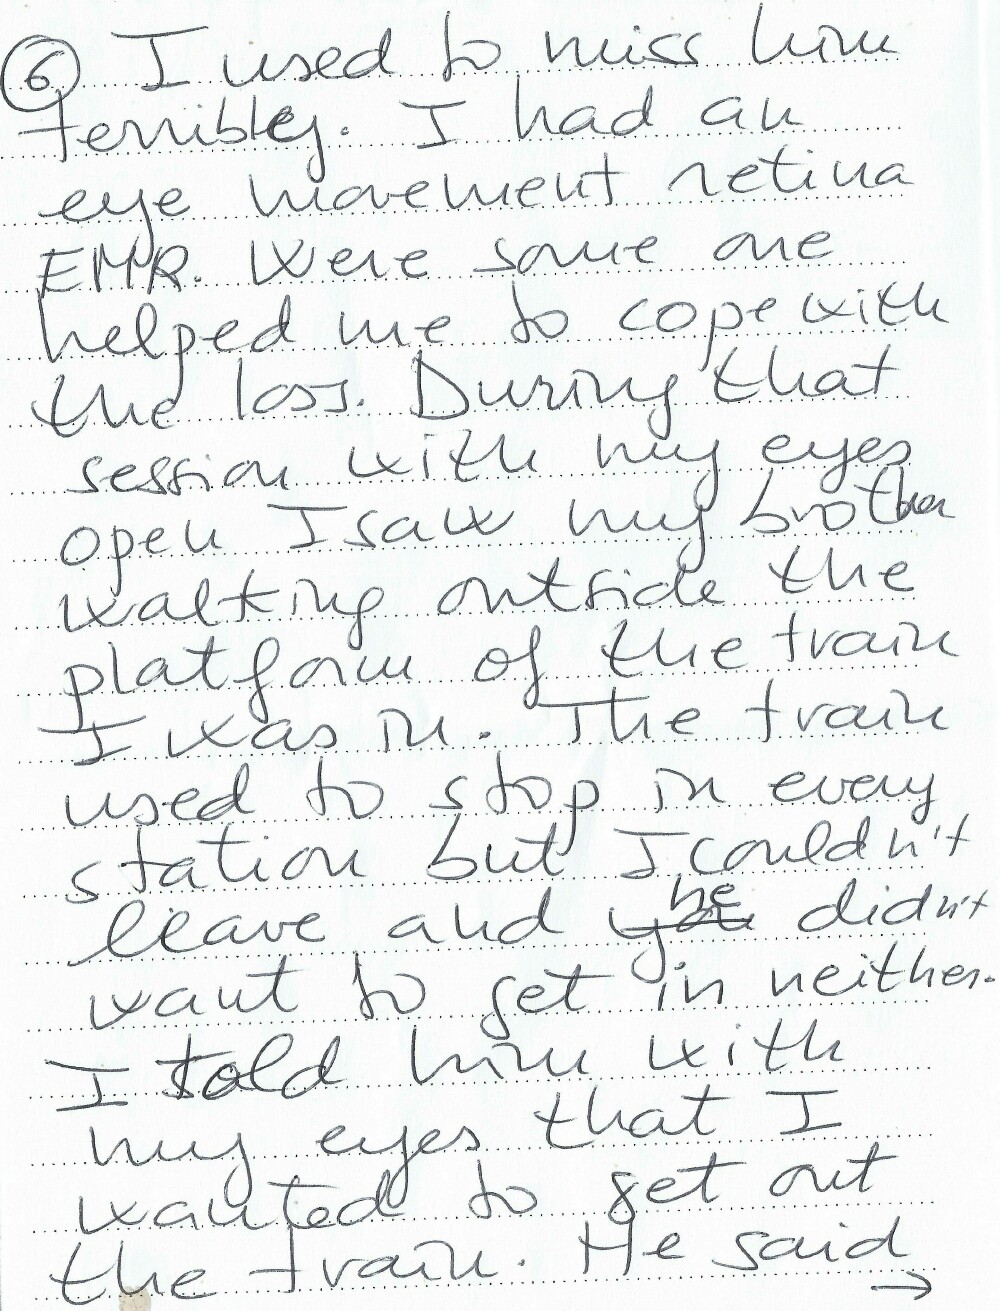 6 I used to miss him
terribley. I had an
eye movement retina
EMR. Were some one
helped me to cope with
the loss. During that
session with my eyes
open I saw my brother
walking outside the
platform of the train
I was in. The train
used to stop in every
station but I couldn't
leave and he didn't
want to get in neither.
I told him with
my eyes that I
wanted to get out
the train. He said
→